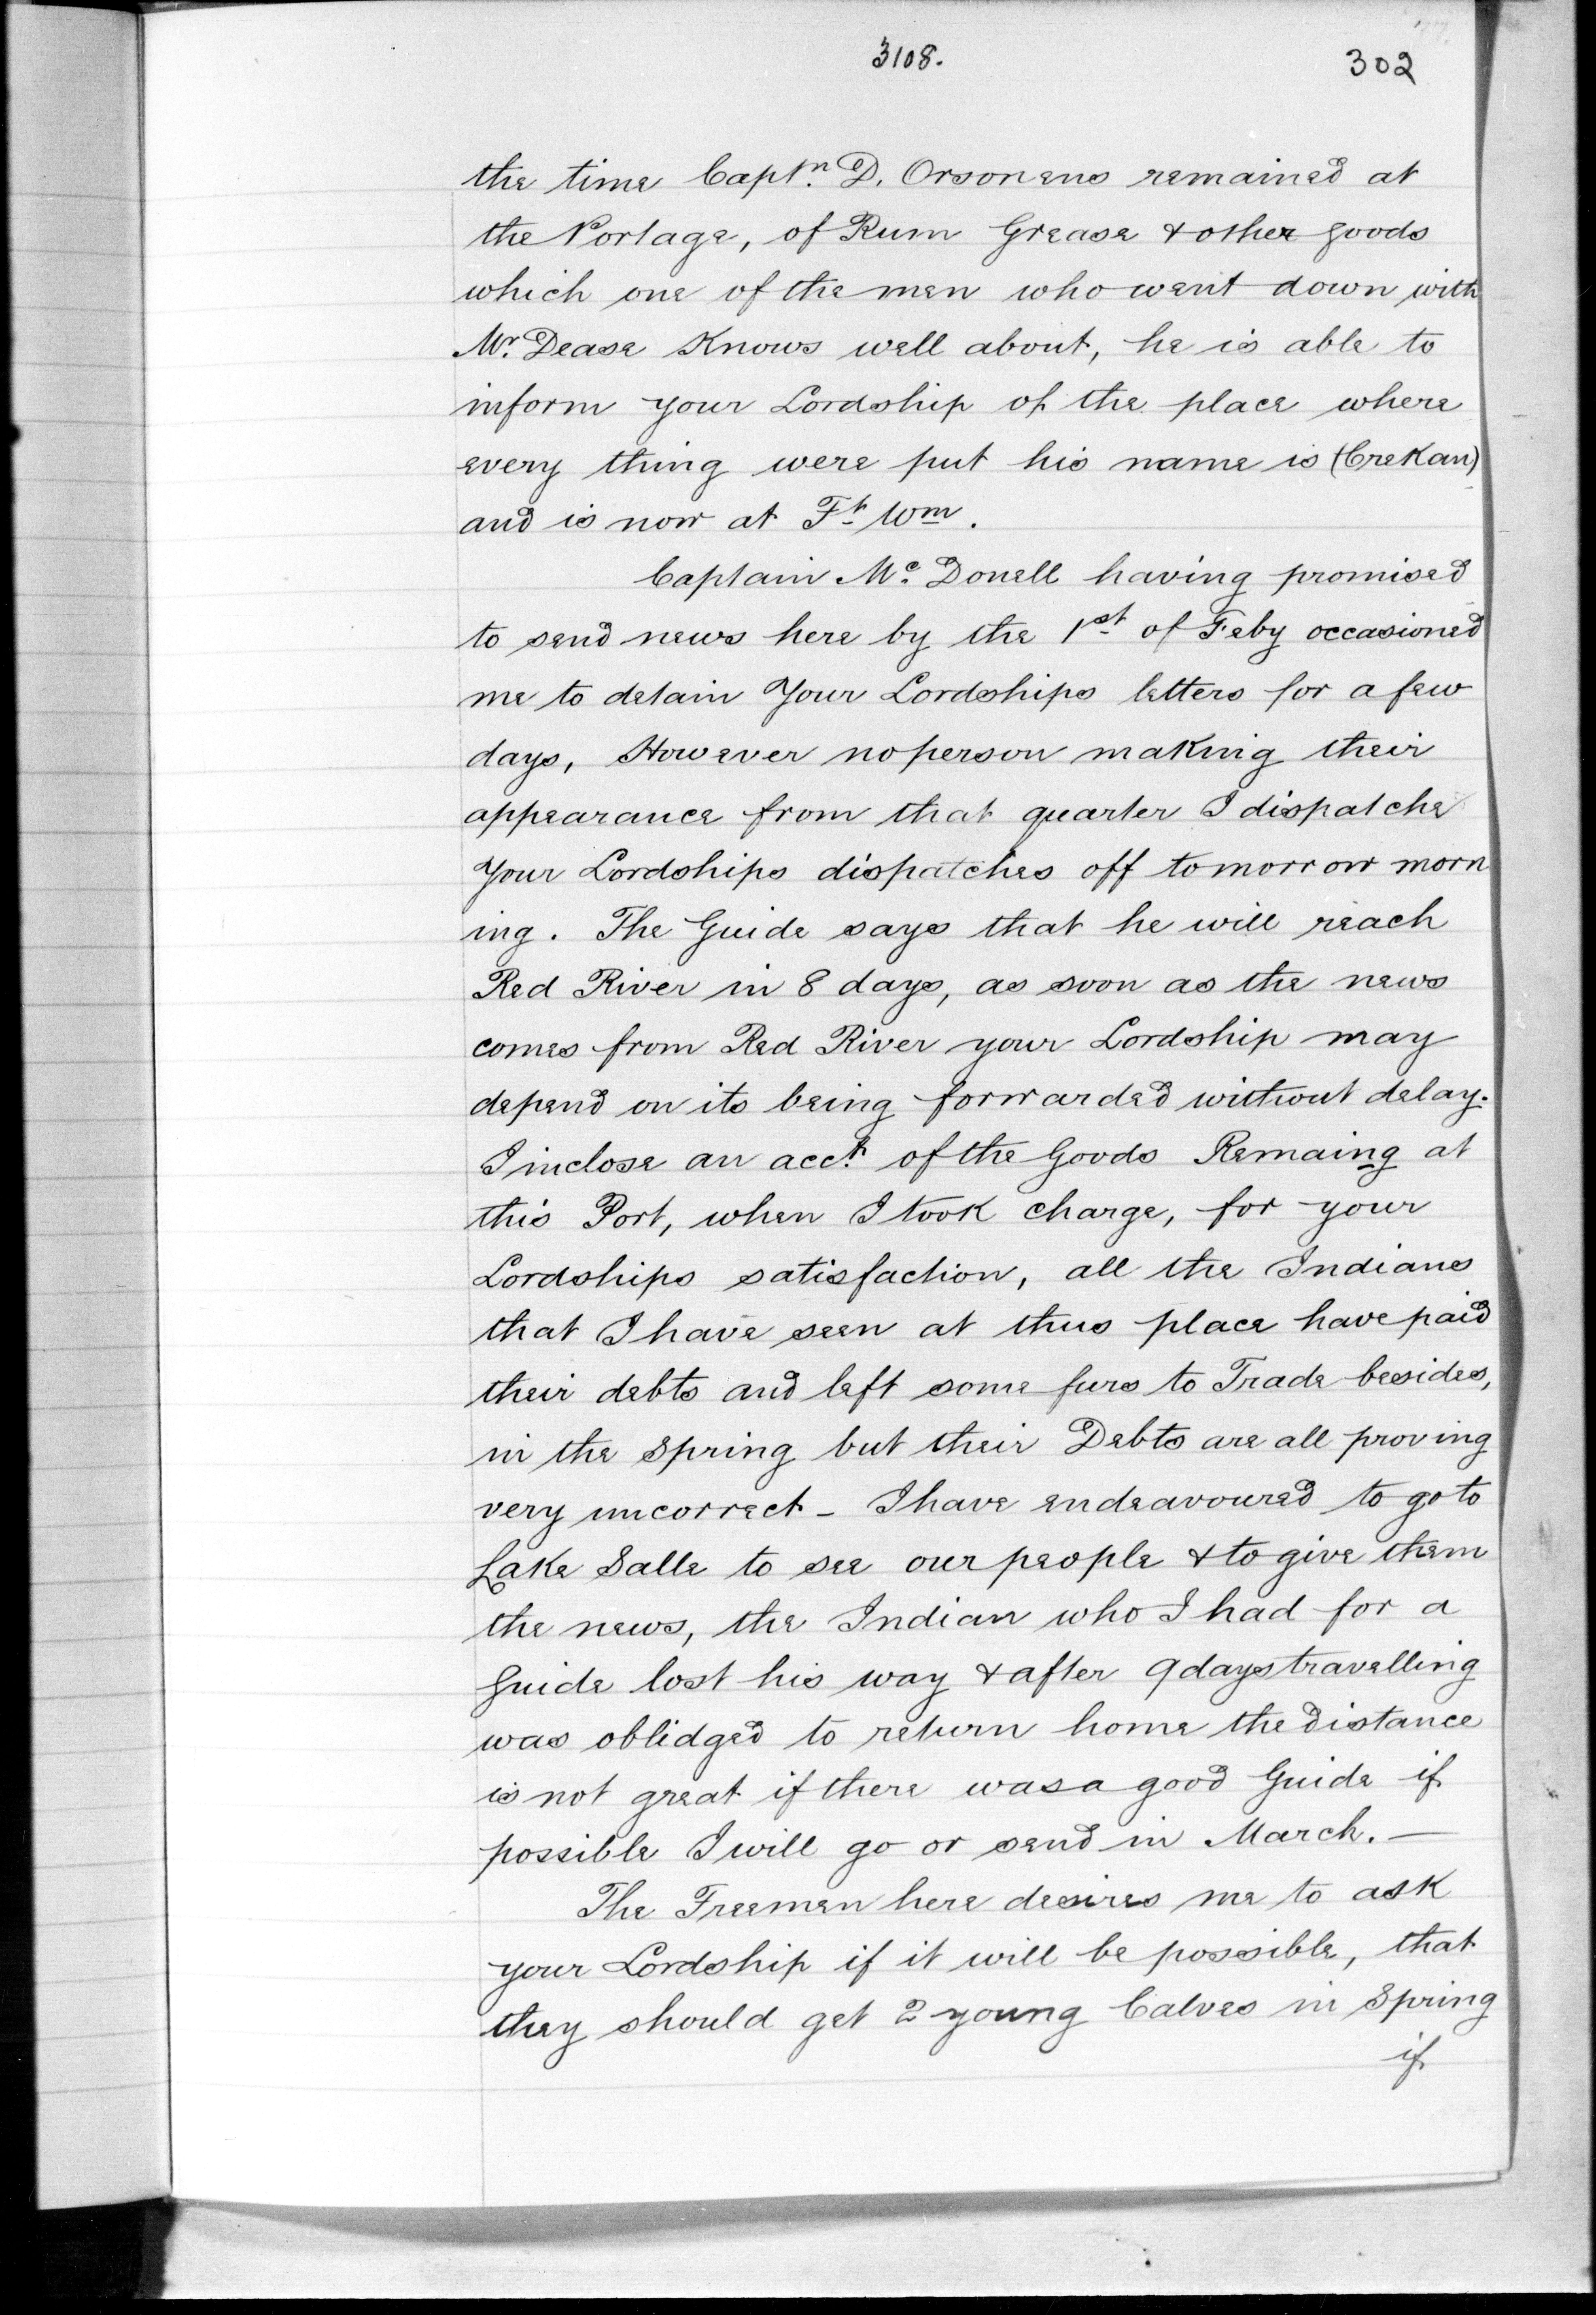 3108.
302
the time Captn. D. Orsonens remained at
the Portage, of Rum Grease & other goods
which one of the men who went down with
Mr. Dease Knows well about, he is able to
inform your Lordship of the place where
every thing were put his name is (CreKan)
and is now at Ft Wm.
Captain Mc. Donell having promised
to send news here by the 1st of Feby occasioned
me to detain Your Lordships letters for a few
days, However no person making their
appearance from that quarter I dispatche
Your Lordships dispatches off tomorrow morn
ing. The Guide says that he will reach
Red River in 8 days, as soon as the news
comes from Red River your Lordship may
depend on its being forwarded without delay.
I inclose an acct. of the Goods Remaing at
this Port, when I took charge, for your
Lordships satisfaction, all the Indians
that I have seen at thus place have paid
their debts and left some furs to Trade besides,
in the Spring but their Debts are all proving
very uncorrect - I have endeavoured to go to
Lake Salle to see our people & to give them
the news, the Indian who I had for a
Guide lost his way & after 9 days travelling
was oblidged to return home the distance
is not great if there was a good Guide if
possible I will go or send in March. —
The Freemen here desires me to ask
your Lordship if it will be possible, that
they should get 2 young Calves in Spring
if